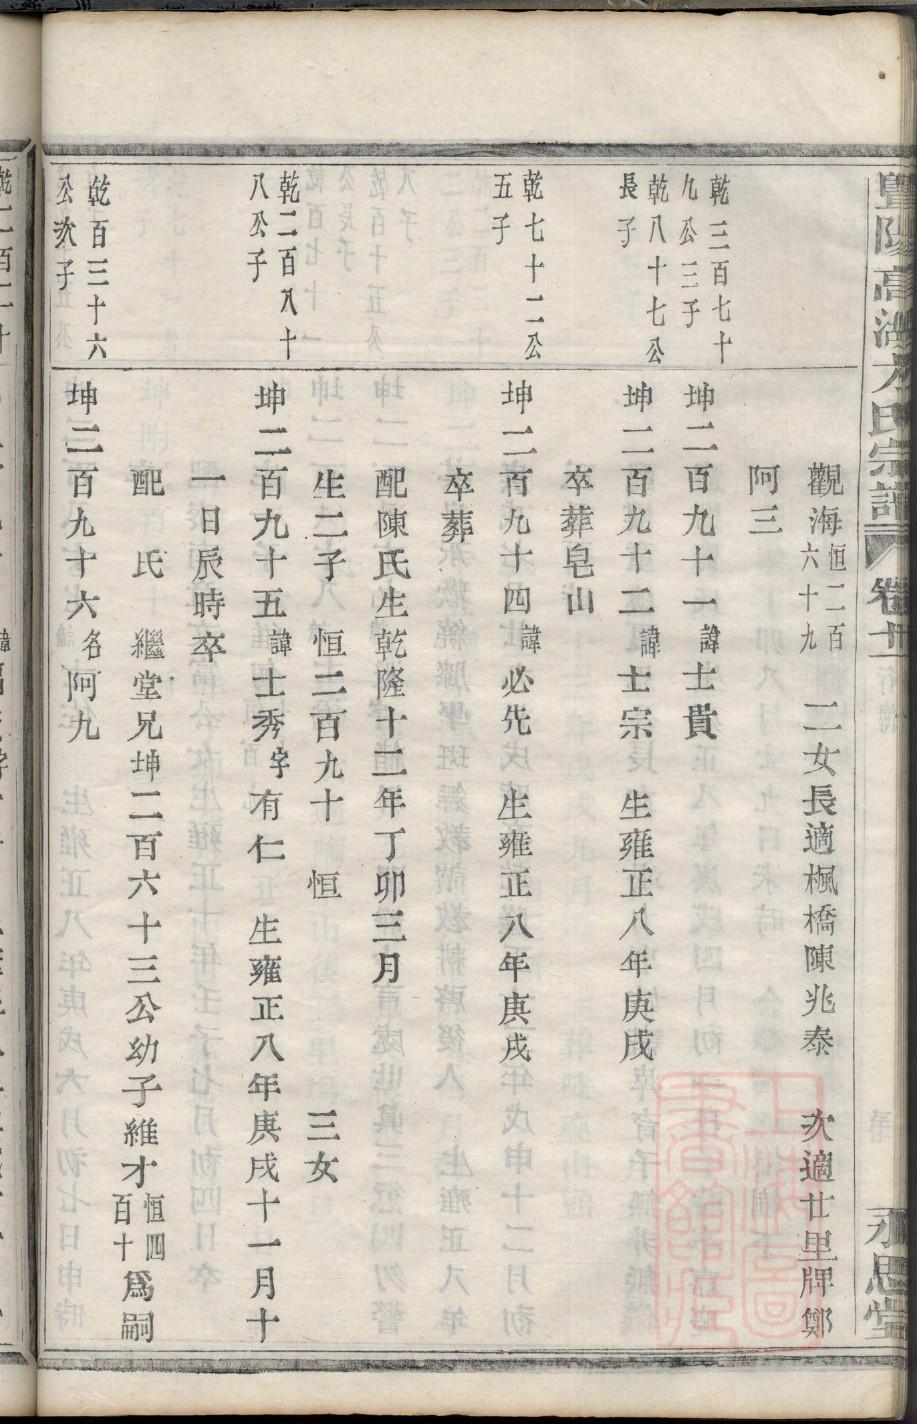 暨陽高湖方氏宗譜 卷廿一 永思堂
觀海恒二百六十九 二女長適楓橋陳兆泰 次適廿里牌鄭
阿三
乾三百七十九公三子
坤二百九十一諱士貴
乾八十七公長子
坤二百九十二諱士宗 生雍正八年庚戌
卒葬皂山
乾七十二公五子
坤二百九十四諱必先 生雍正八年庚戌
卒葬
配陳氏生乾隆十二年丁卯三月
生二子 恒二百九十 恒 三女
乾二百八十八公子
坤二百九十五諱士秀字有仁 生雍正八年庚戌十一月十
一日辰時卒
配 氏 繼堂兄坤二百六十三公幼子維才恒四百十爲嗣
乾百三十六公次子
坤二百九十六名阿九